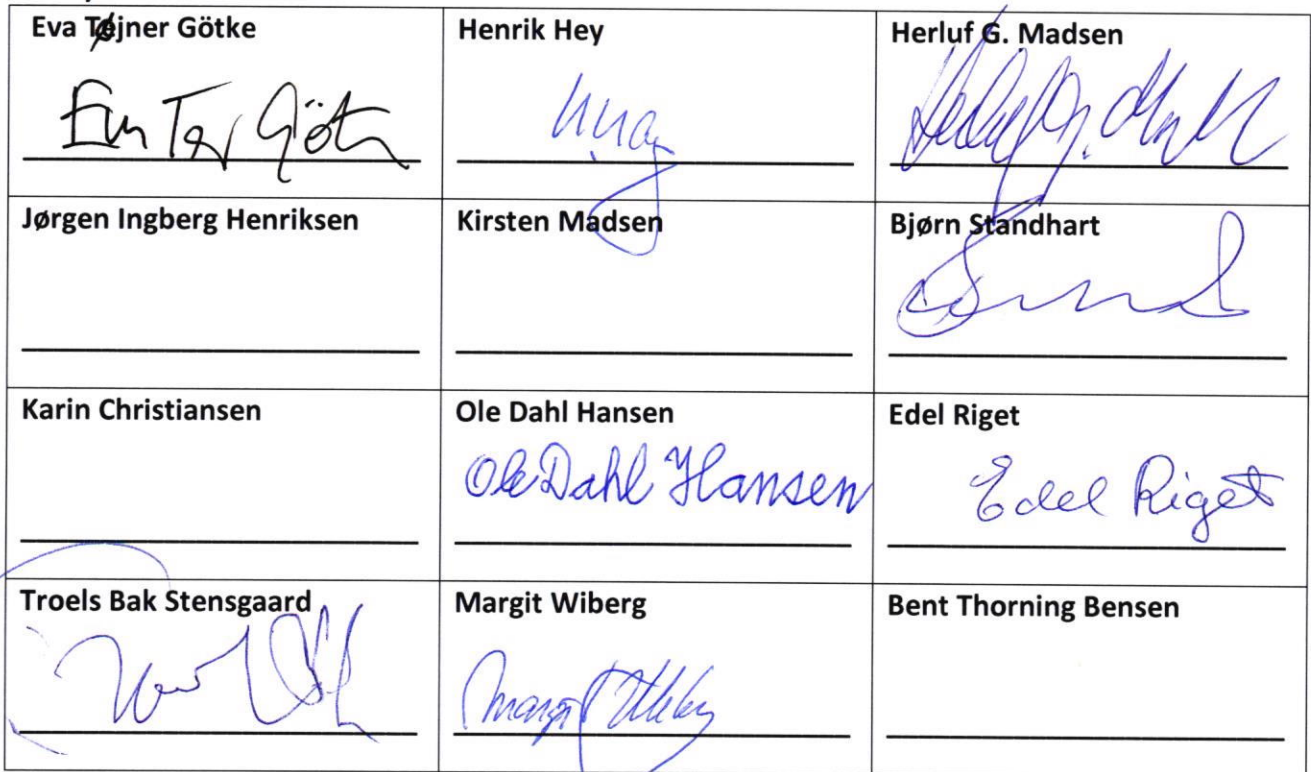 Eva Tøjner Götke
Henrik Hey
Herluf G. Madsen
Jørgen Ingberg Henriksen
Kirsten Madsen
Bjørn Standhart
Karin Christiansen
Ole Dahl Hansen
Ole Dahl Hansen
Edel Riget
Edel Riget
Troels Bak Stensgaard
Margit Wiberg
Bent Thorning Bensen